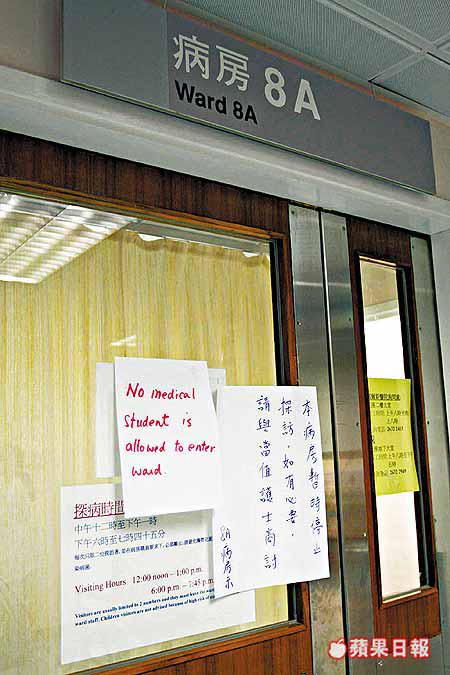 病房 8A
Ward 8A
No medical
student is
allowed to enter
ward.
本病房暫時停止
探訪，如有必要，
請與當值護士商討
8A病房示
探病時間
中午十二時至下午一時
下午六時至七時四十五分
Visiting Hours 12:00 noon – 1:00 p.m.
6:00 p.m. – 7:45 p.m.
Visitors are usually limited to 2 numbers and they must leave the
ward staff. Children visitors are not advised because of high risk of
蘋果日報